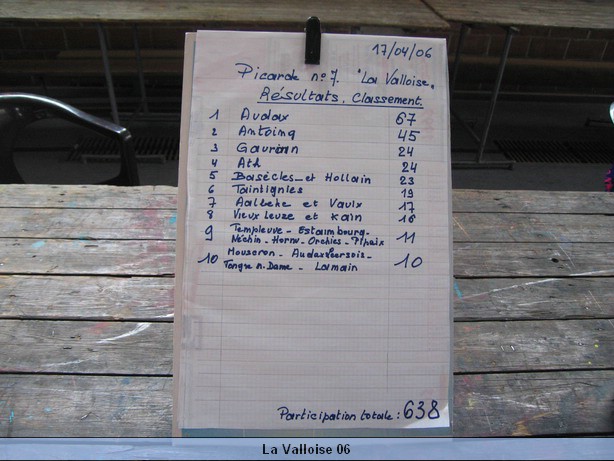 17/04/06
Picarde n° 7 "La Valloise"
Résultats. Classement.
1 Audax 67
2 Antoing 45
3 Gaurain 24
4 Ath 24
5 Basècles et Hollain 23
6 Taintignies 19
7 Aalbeke et Vaulx 17
8 Vieux Leuze et Kain 16
9 Templeuve - Estaimbourg -
Néchin - Hornu - Orchies - Pipaix 11
Mouscron - Audax Leersois -
10 Tongre n. Dame - Lamain 10
Participation totale : 638
La Valloise 06